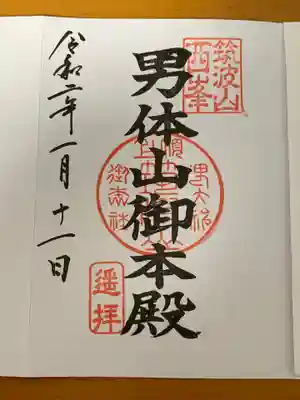 筑波山
西峯
男体山御本殿
遥拝
令和二年一月十一日